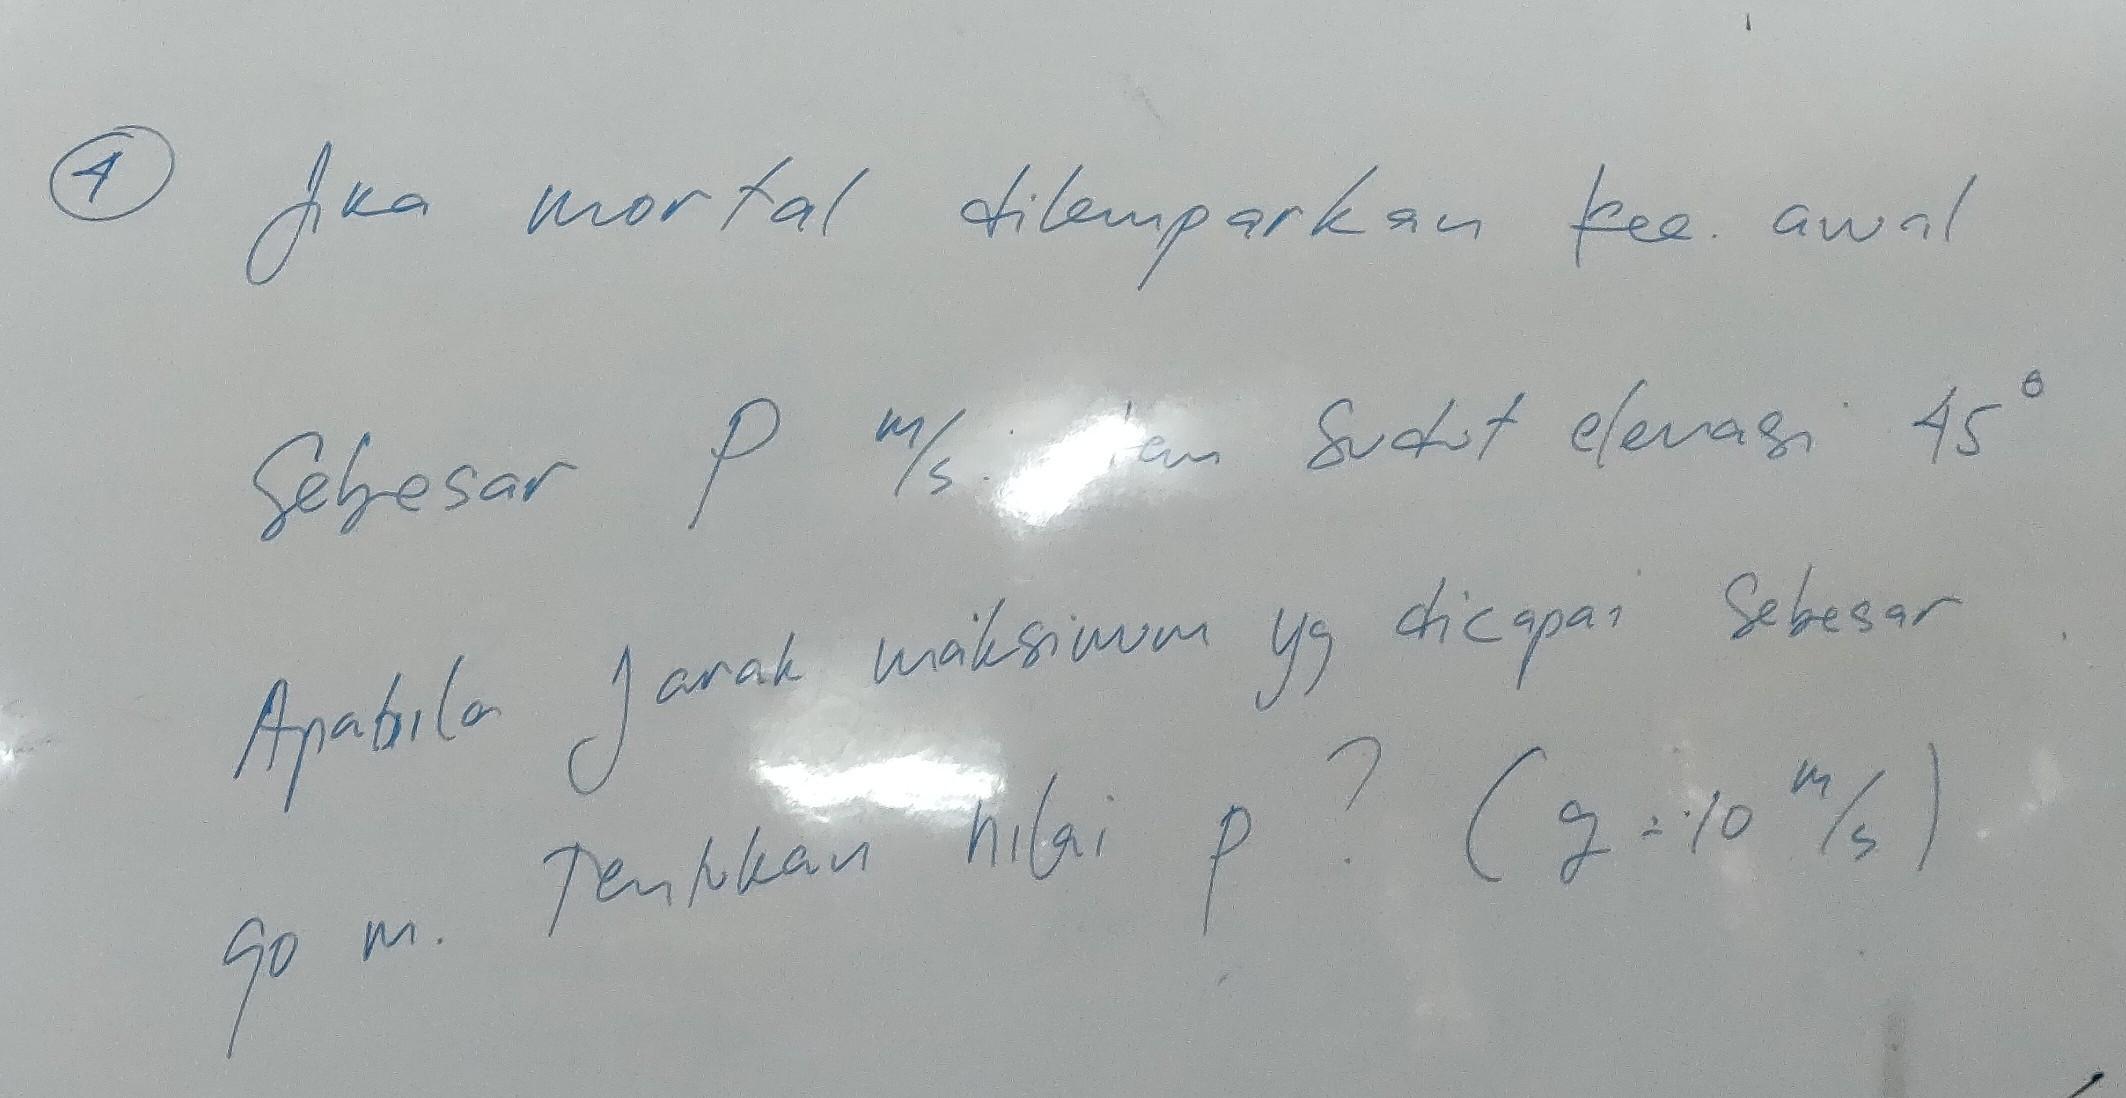 ④ Jika mortal dilemparkan kec. awal
Sebesar P m/s. dan Sudut elevasi 45°
Apabila Jarak maksimum yg dicapai Sebesar
90 m. Tentukan nilai P? (g = 10 m/s)